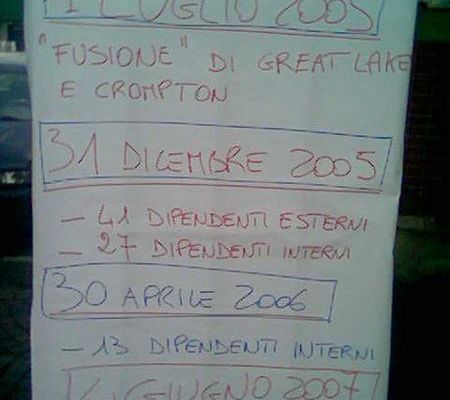 1 LUGLIO 2005
"FUSIONE" DI GREAT LAKE
E CROMPTON
31 DICEMBRE 2005
- 41 DIPENDENTI ESTERNI
- 27 DIPENDENTI INTERNI
30 APRILE 2006
- 13 DIPENDENTI INTERNI
GIUGNO 2007